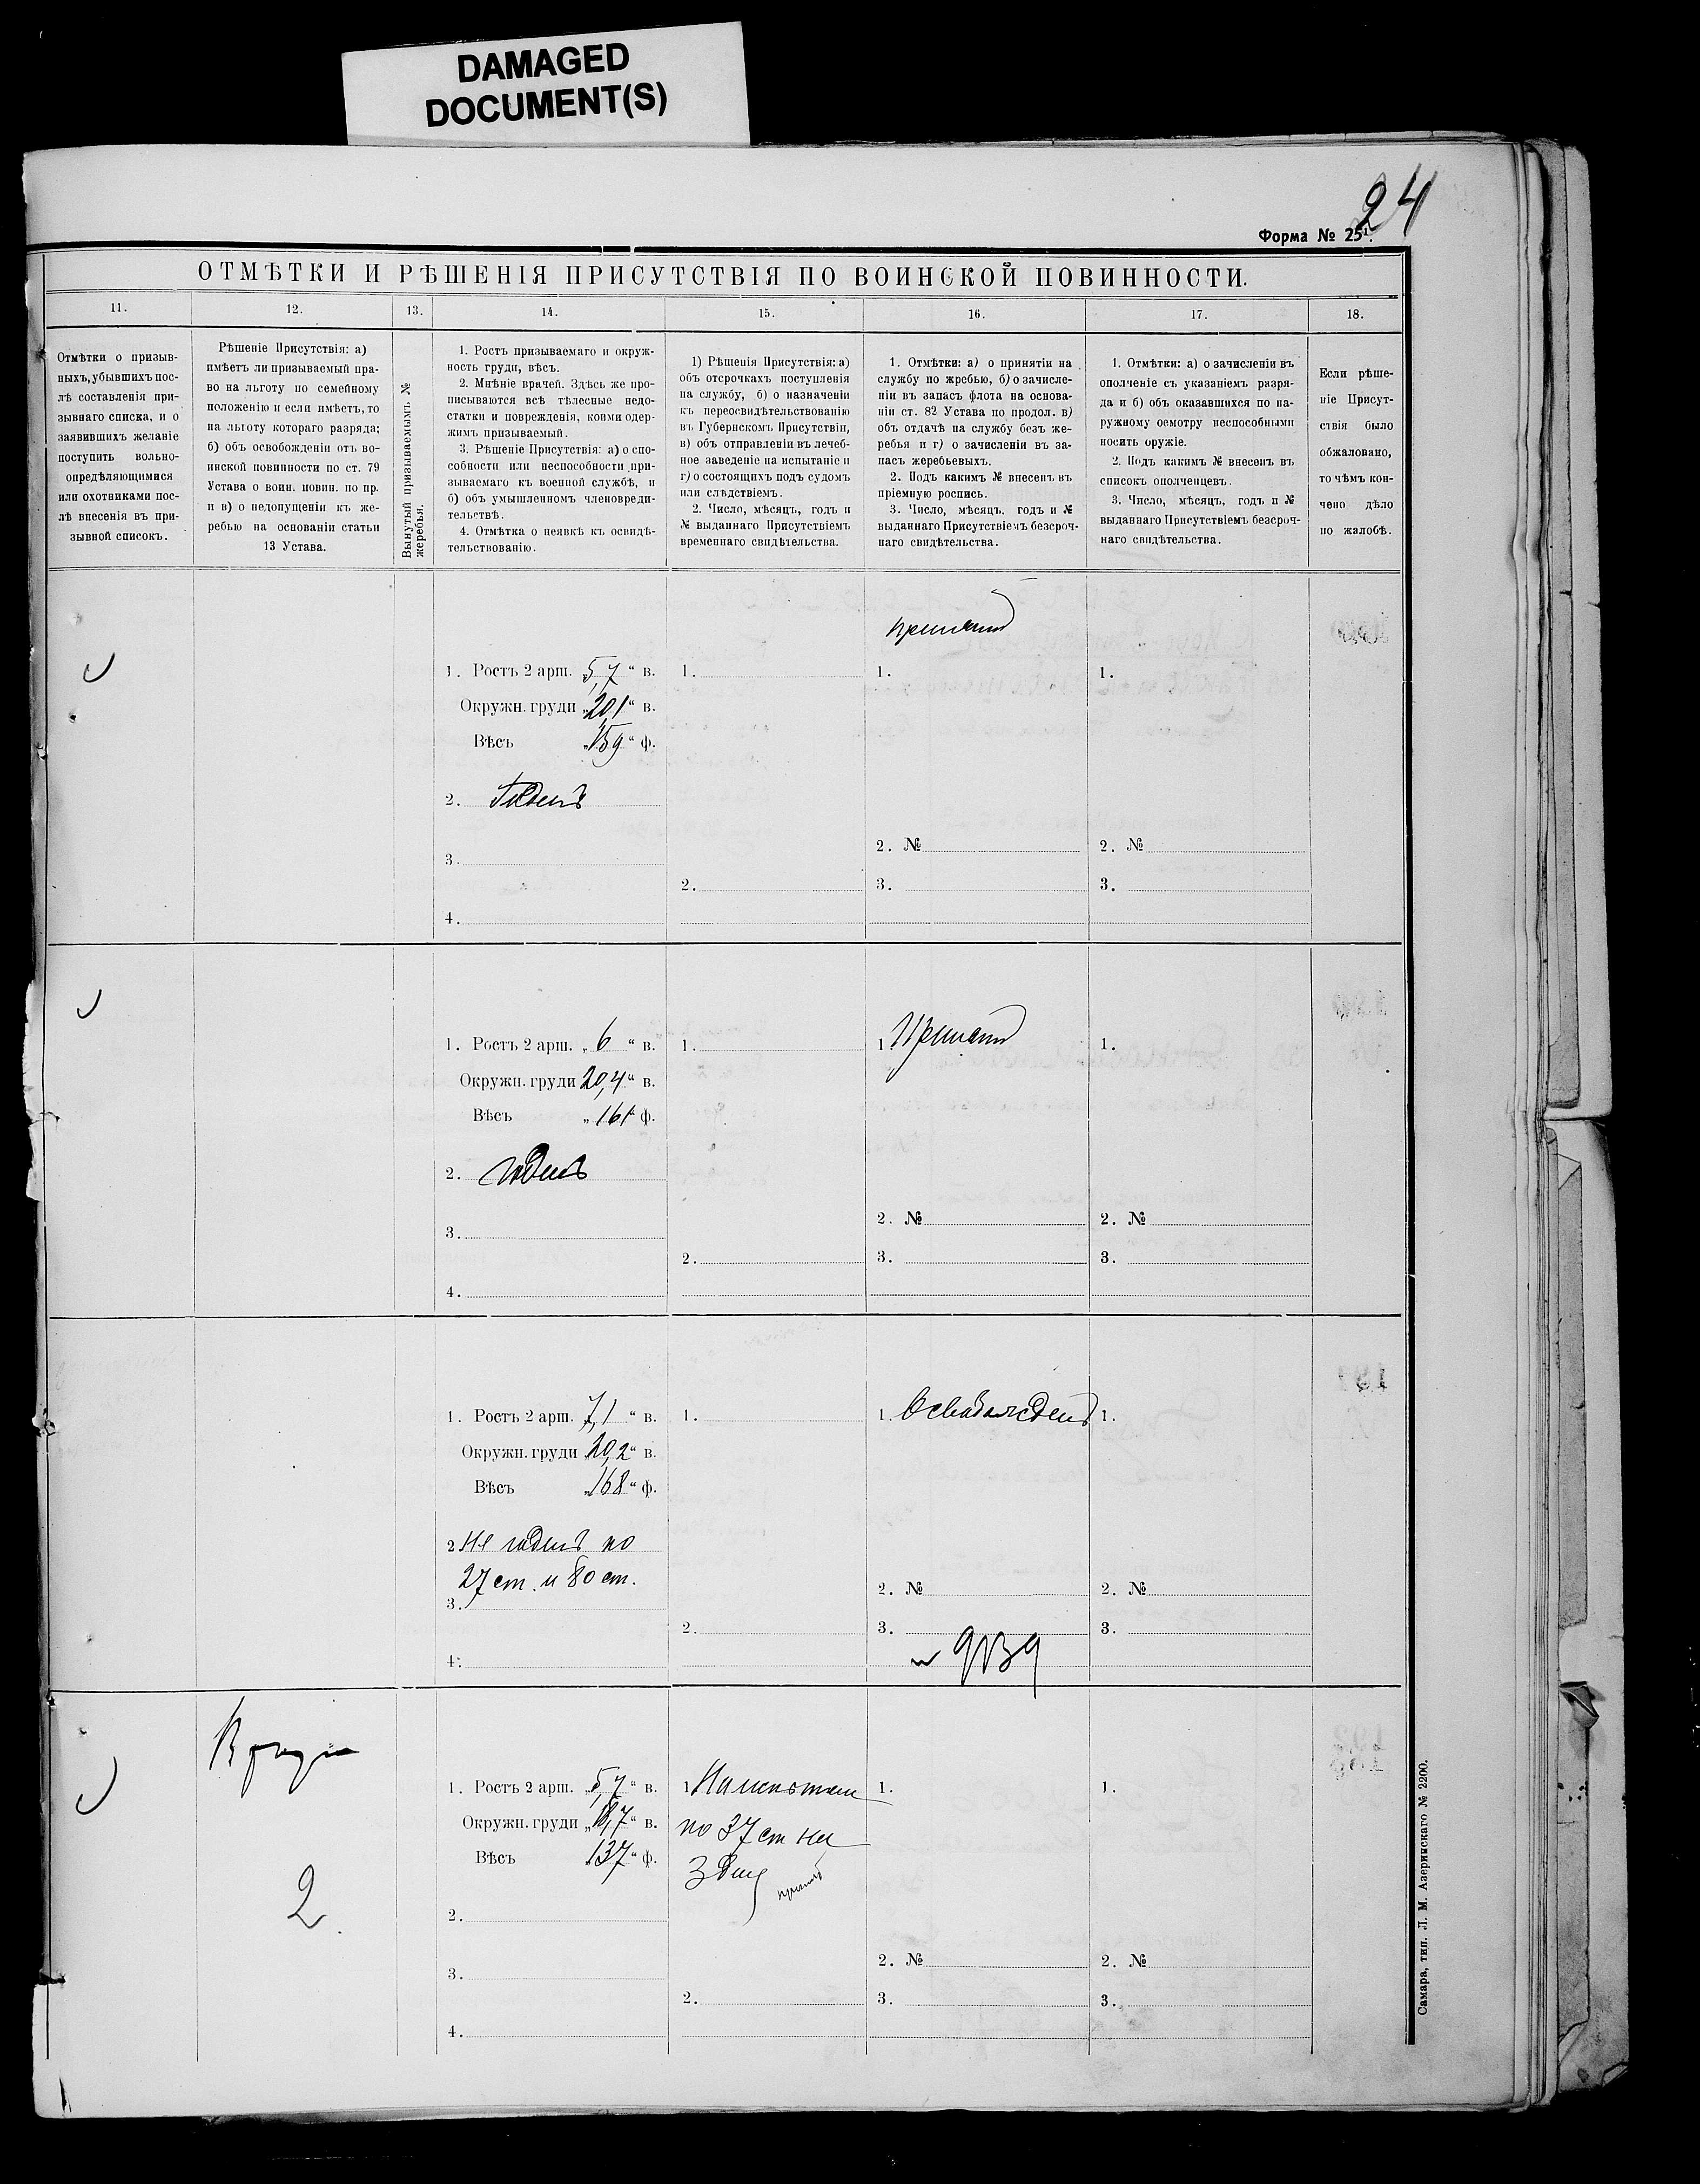 DAMAGED
DOCUMENT(S)
24
Форма № 25¹.
ОТМѢТКИ И РѢШЕНІЯ ПРИСУТСТВІЯ ПО ВОИНСКОЙ ПОВИННОСТИ.
11. 12. 13. 14. 15. 16. 17. 18.
Отмѣтки о призыв-
ныхъ, убывшихъ пос-
лѣ составленія при-
зывнаго списка, и о
заявившихъ желаніе
поступить вольно-
опредѣляющимися
или охотниками пос-
лѣ внесенія въ при-
зывной списокъ.
Рѣшеніе Присутствія: а)
имѣетъ ли призываемый пра-
во на льготу по семейному
положенію и если имѣетъ, то
на льготу котораго разряда;
б) объ освобожденіи отъ во-
инской повинности по ст. 79
Устава о воин. повин. по пр.
и в) о недопущеніи къ же-
ребью на основаніи статьи
13 Устава.
Вынутый призываемымъ №
жеребья.
1. Ростъ призываемаго и окруж-
ность груди, вѣсъ.
2. Мнѣніе врачей. Здѣсь же про-
писываются всѣ тѣлесные недо-
статки и поврежденія, коими одер-
жимъ призываемый.
3. Рѣшеніе Присутствія: а) о спо-
собности или неспособности при-
зываемаго къ военной службѣ, и
б) объ умышленномъ членовреди-
тельствѣ.
4. Отмѣтка о неявкѣ къ освидѣ-
тельствованію.
1) Рѣшенія Присутствія: а)
объ отсрочкахъ поступленія
на службу, б) о назначеніи
къ переосвидѣтельствованію
въ Губернскомъ Присутствіи,
в) объ отправленіи въ лечеб-
ное заведеніе на испытаніе и
г) о состоящихъ подъ судомъ
или слѣдствіемъ.
2. Число, мѣсяцъ, годъ и
№ выданнаго Присутствіемъ
временнаго свидѣтельства.
1. Отмѣтки: а) о принятіи на
службу по жребью, б) о зачисле-
ніи въ запасъ флота на основа-
ніи ст. 82 Устава по продол. в)
объ отдачѣ на службу безъ же-
ребья и г) о зачисленіи въ за-
пасъ жеребьевыхъ.
2. Подъ какимъ № внесенъ въ
пріемную роспись.
3. Число, мѣсяцъ, годъ и №
выданнаго Присутствіемъ безсроч-
наго свидѣтельства.
1. Отмѣтки: а) о зачисленіи въ
ополченіе съ указаніемъ разря-
да и б) объ оказавшихся по на-
ружному осмотру неспособными
носить оружіе.
2. Подъ какимъ № внесенъ въ
списокъ ополченцевъ.
3. Число, мѣсяцъ, годъ и №
выданнаго Присутствіемъ безсроч-
наго свидѣтельства.
Если рѣше-
ніе Присут-
ствія было
обжаловано,
то чѣмъ кон-
чено дѣло
по жалобѣ.
принятъ
1. Ростъ 2 арш. „5,7“ в. 1. 1. 1.
Окружн. груди „20,1“ в.
Вѣсъ „159“ ф.
2. Годенъ
2. № 2. №
3.
2. 3. 3.
4.
1. Ростъ 2 арш. „6“ в. 1. 1. Принятъ 1.
Окружн. груди 20,4“ в.
Вѣсъ „161“ ф.
2. годенъ
2. № 2. №
3.
2. 3. 3.
4.
1. Ростъ 2 арш. 7,1 “ в. 1. 1. Освобожденъ 1.
Окружн. груди „20,2“ в.
Вѣсъ „168“ ф.
2 Не годенъ по
27 ст. и 80 ст.
2. № 2. №
3.
2. 3. 3.
4.
2
1. Ростъ 2 арш. „5,7“ в. 1 1. 1.
Окружн. груди „18,7“ в. по 37 ст на
Вѣсъ „137“ ф. принятъ
2.
2. № 2. №
3.
2. 3. 3.
4.
Самара, тип. Л. М. Азеринскаго № 2200.